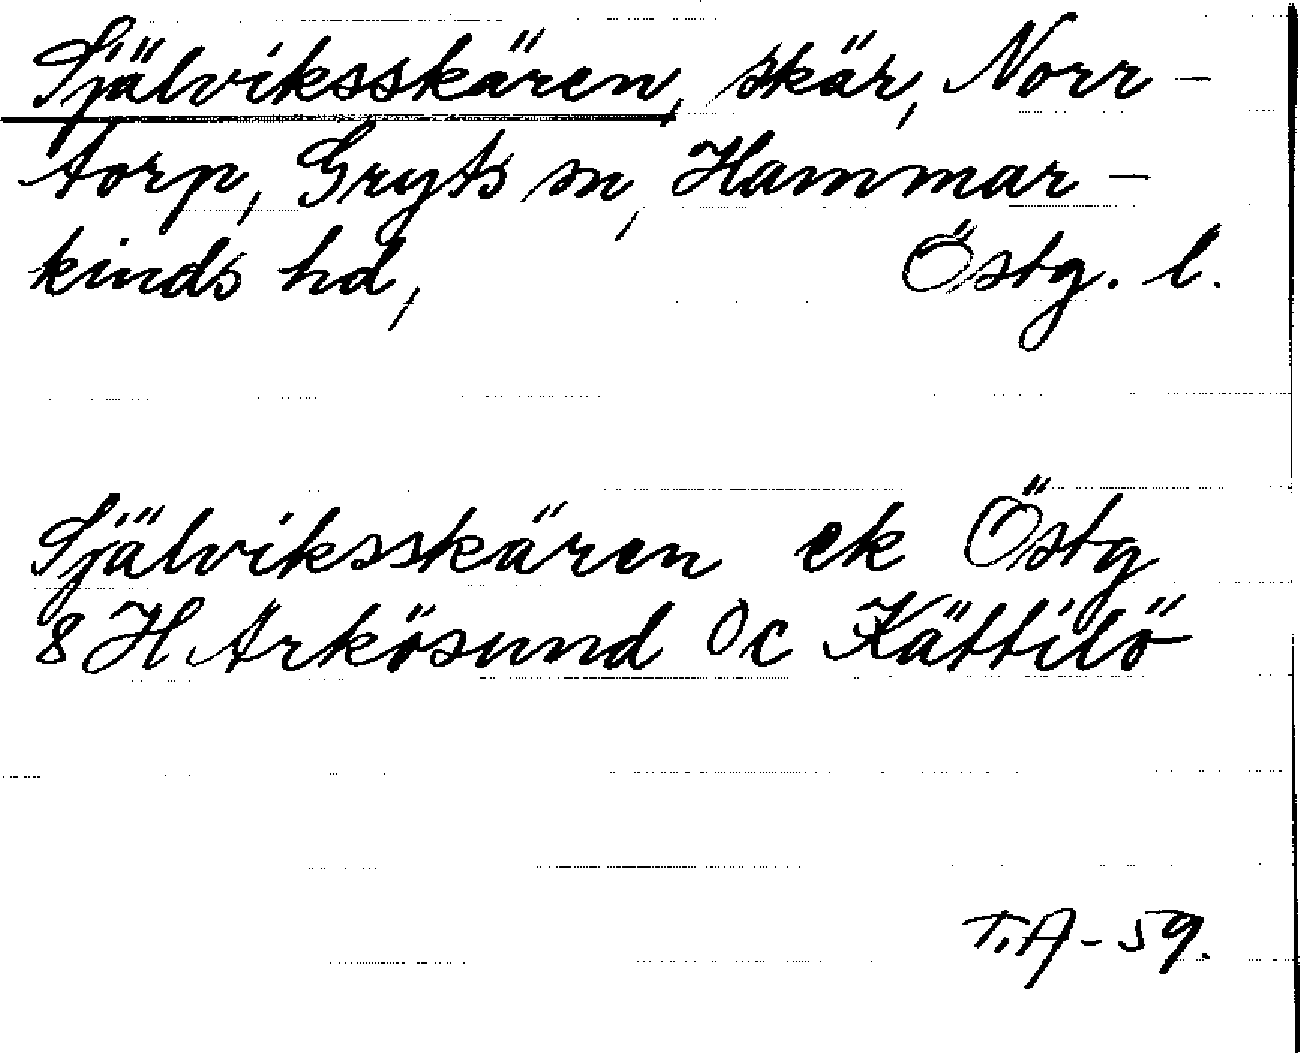 Själviksskären, skär, Norr-
torp, Gryts sn, Hammar-
kinds hd, Östg. l.
Själviksskären ek Östg
8 H Arkösund 0c Kättilö
T.A-59.